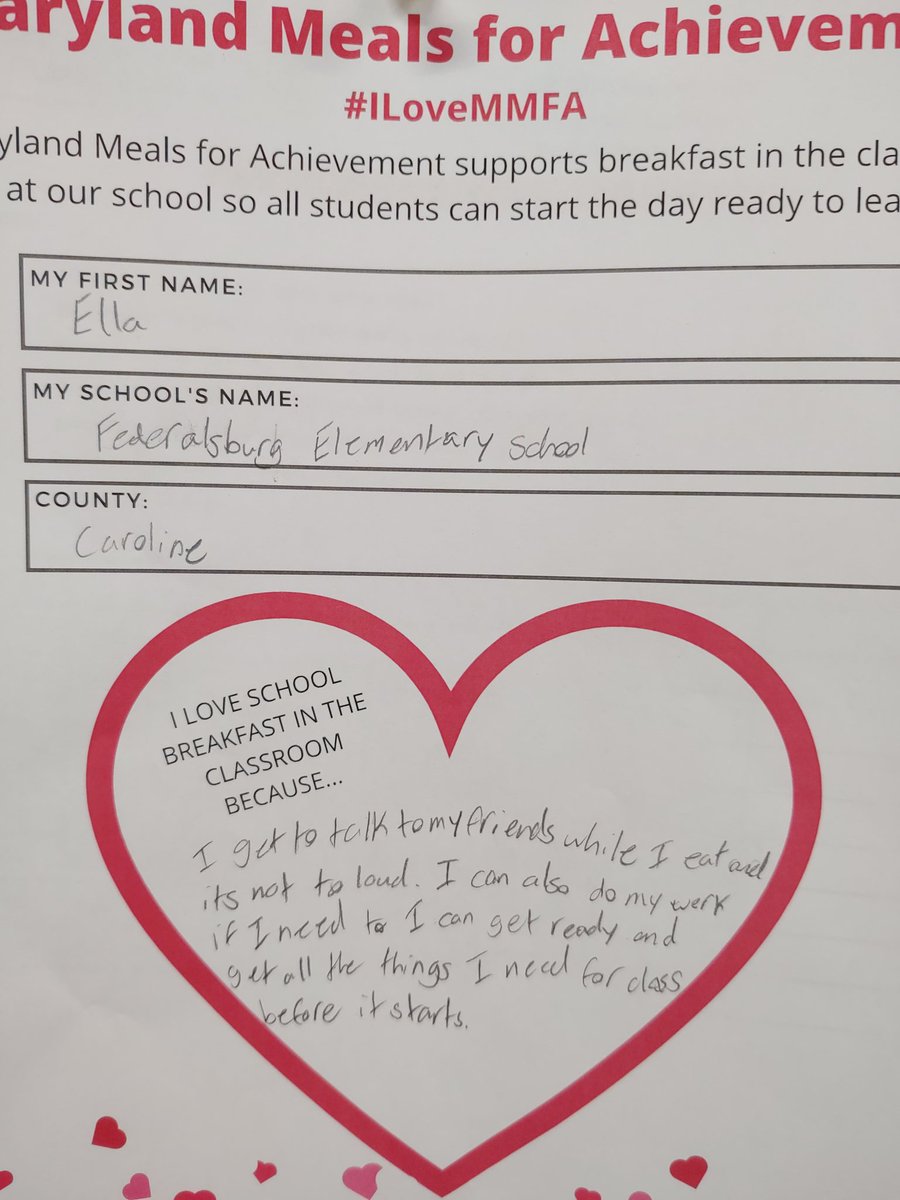 aryland Meals for Achievem
#ILoveMMFA
yland Meals for Achievement supports breakfast in the cla
at our school so all students can start the day ready to lea
MY FIRST NAME:
Ella
MY SCHOOL'S NAME:
Federalsburg Elementary School
COUNTY:
Caroline
I LOVE SCHOOL
BREAKFAST IN THE
CLASSROOM
BECAUSE...
I get to talk to my friends while I eat and
its not to loud. I can also do my werk
if I need to I can get ready and
get all the things I need for class
before it starts.